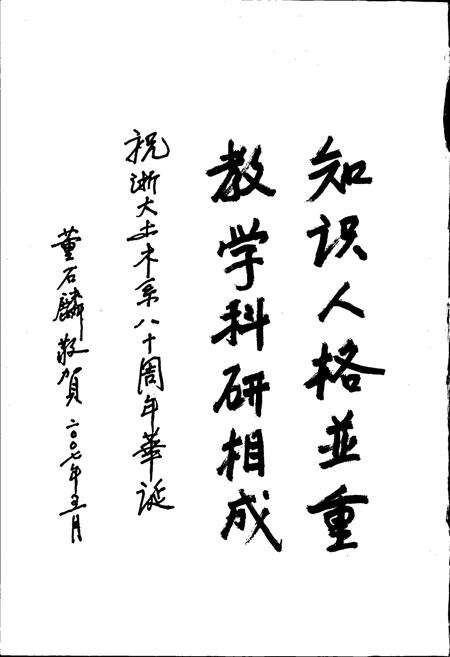 知识人格並重
教学科研相成
祝浙大土木系八十周年華诞
董石麟敬賀 二〇〇七年五月